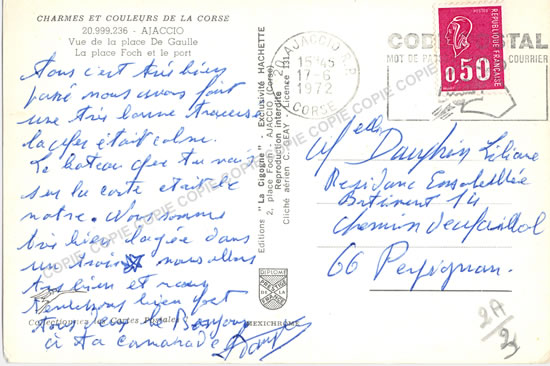 CHARMES ET COULEURS DE LA CORSE
20.999.236 - AJACCIO
Vue de la place De Gaulle
La place Foch et le port
Tous c'est très bien
passé nous avons fait
une très bonne traversée
la mer était calme.
Le bateau que tu vois
sur la carte était le
notre. Nous sommes
très bien logée dans
un nous allons
très bien et nous
bien
le Bonjour
à ta camarade
Collectionnez les Cartes Postales
Editions "La Cigogne" - Exclusivité HACHETTE
2, place Foch - AJACCIO (Corse)
Reproduction interdite
Cliché aérien C. Licence
DIFCOM
PRESTIGE DE LA FRANCE
MEXICHROME
COPIE COPIE COPIE COPIE COPIE COPIE COPIE
20 AJACCIO R.P.
15H45
17-6
1972
CORSE
CODE POSTAL
MOT DE PA COURRIER
POSTES
REPUBLIQUE FRANÇAISE
0,50
Melle Dauphin Liliane
Residance Ensoleillée
Batiment 14
Chemin
66 Perpignan.
2A/2